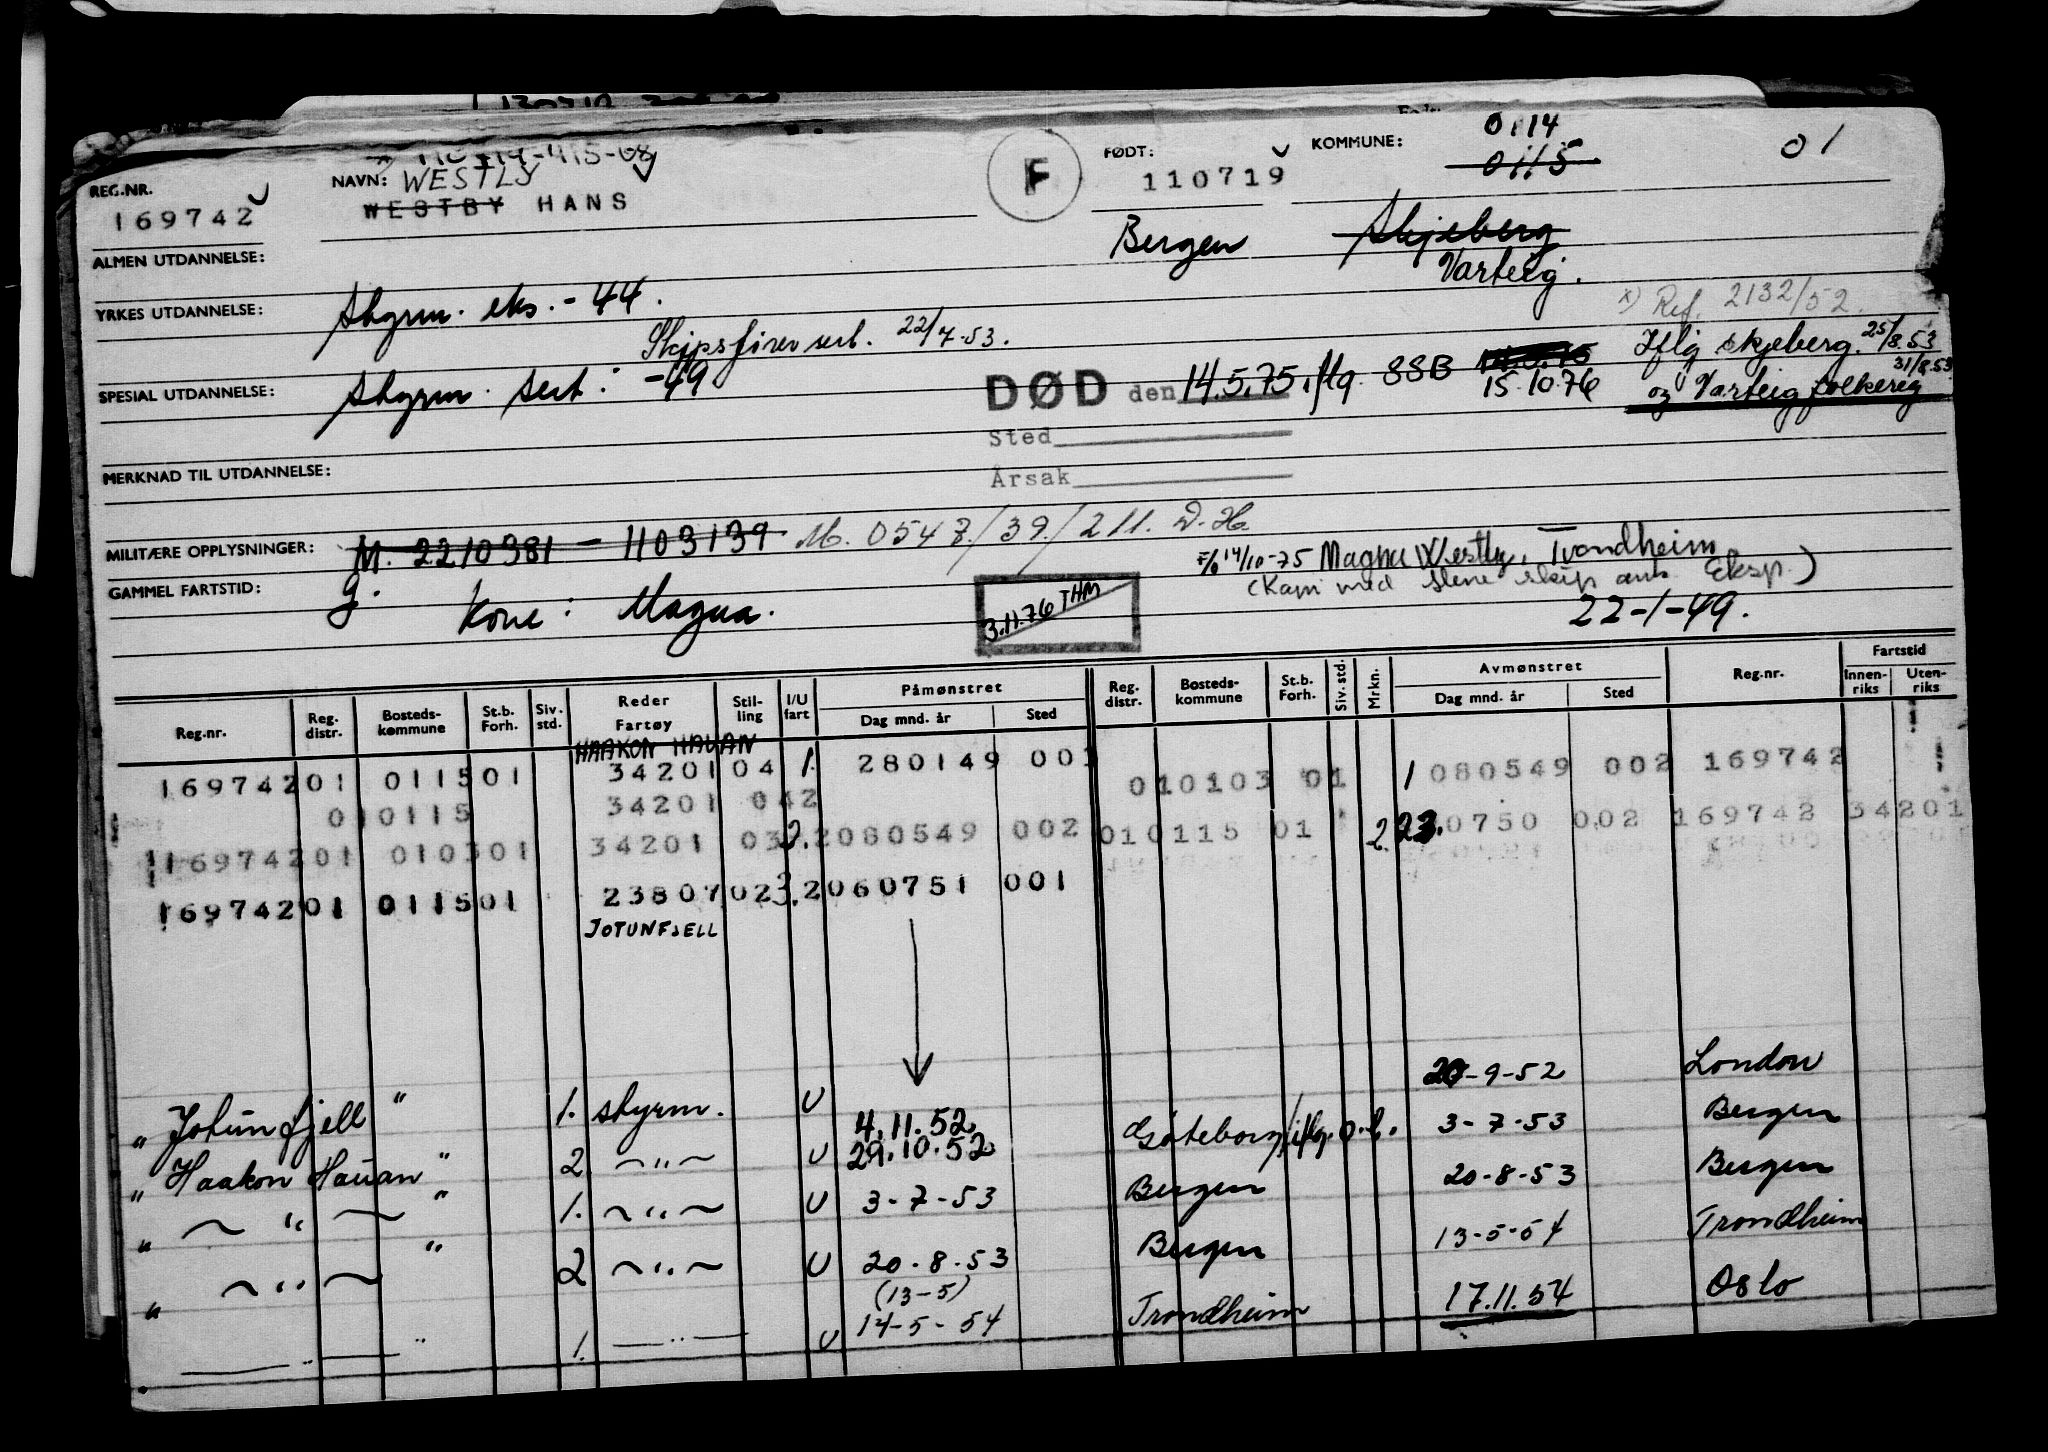 REG.NR.
169742
NAVN: WESTLY
WESTBY HANS
F
FØDT:
110719
KOMMUNE:
0114
0115
01
Bergen
Skjeberg
Varteig.
ALMEN UTDANNELSE:
YRKES UTDANNELSE:
Styrm. eks. - 44.
Skipsfører sert. 22/7-53.
x) Ref. 2132/52.
Iflg skjeberg. 25/8.53
31/8.53
og Varteig folkereg
SPESIAL UTDANNELSE:
Styrm. sert: -49
DØD den 14.5.75 iflg. SSB
15.10.76
Sted
Årsak
MERKNAD TIL UTDANNELSE:
MILITÆRE OPPLYSNINGER:
M. 2210381 - 1103139
M. 0547/39/211. D.H.
14/10-75 Magna Westly, Trondheim
(Kom med slene skip ank. Eksp.)
GAMMEL FARTSTID:
g.
Kone: Magna.
3.11.76 THM
22-1-49.
Reg.nr. Reg. distr. Bosteds-kommune St.b. Forh. Siv. std. Reder Fartøy Stil-ling I/U fart Påmønstret Dag mnd. år Sted Reg. distr. Bosteds-kommune St.b. Forh. Siv. std. Mrkn. Avmønstret Dag mnd. år Sted Reg.nr. Fartstid Innen-riks Uten-riks
HAAKON HAUAN
169742 01 0115 01 34201 04 1. 280149 001 01 0103 01 1 080549 002 169742
01 0115 34201 042
169742 01 0103 01 34201 03 2. 2080549 002 01 0115 01 2. 23. 0750 002 169742 34201
169742 01 0115 01 23807 02 3. 2060751 001
JOTUNFJELL
20-9-52 London
" Jotunfjell " 1. styrm. U 4.11.52 Göteborg iflg. o.b. 3-7-53 Bergen
" Haakon Hauan " 2 ~"~ U 29.10.52 Bergen 20-8-53 Bergen
" ~"~ " 1. ~"~ U 3-7-53 Bergen 13-5-54 Trondheim
" ~"~ " 2 ~"~ U 20-8-53 Trondheim 17.11.54 Oslo
(13-5)
—"— " 1. —"— U 14-5-54